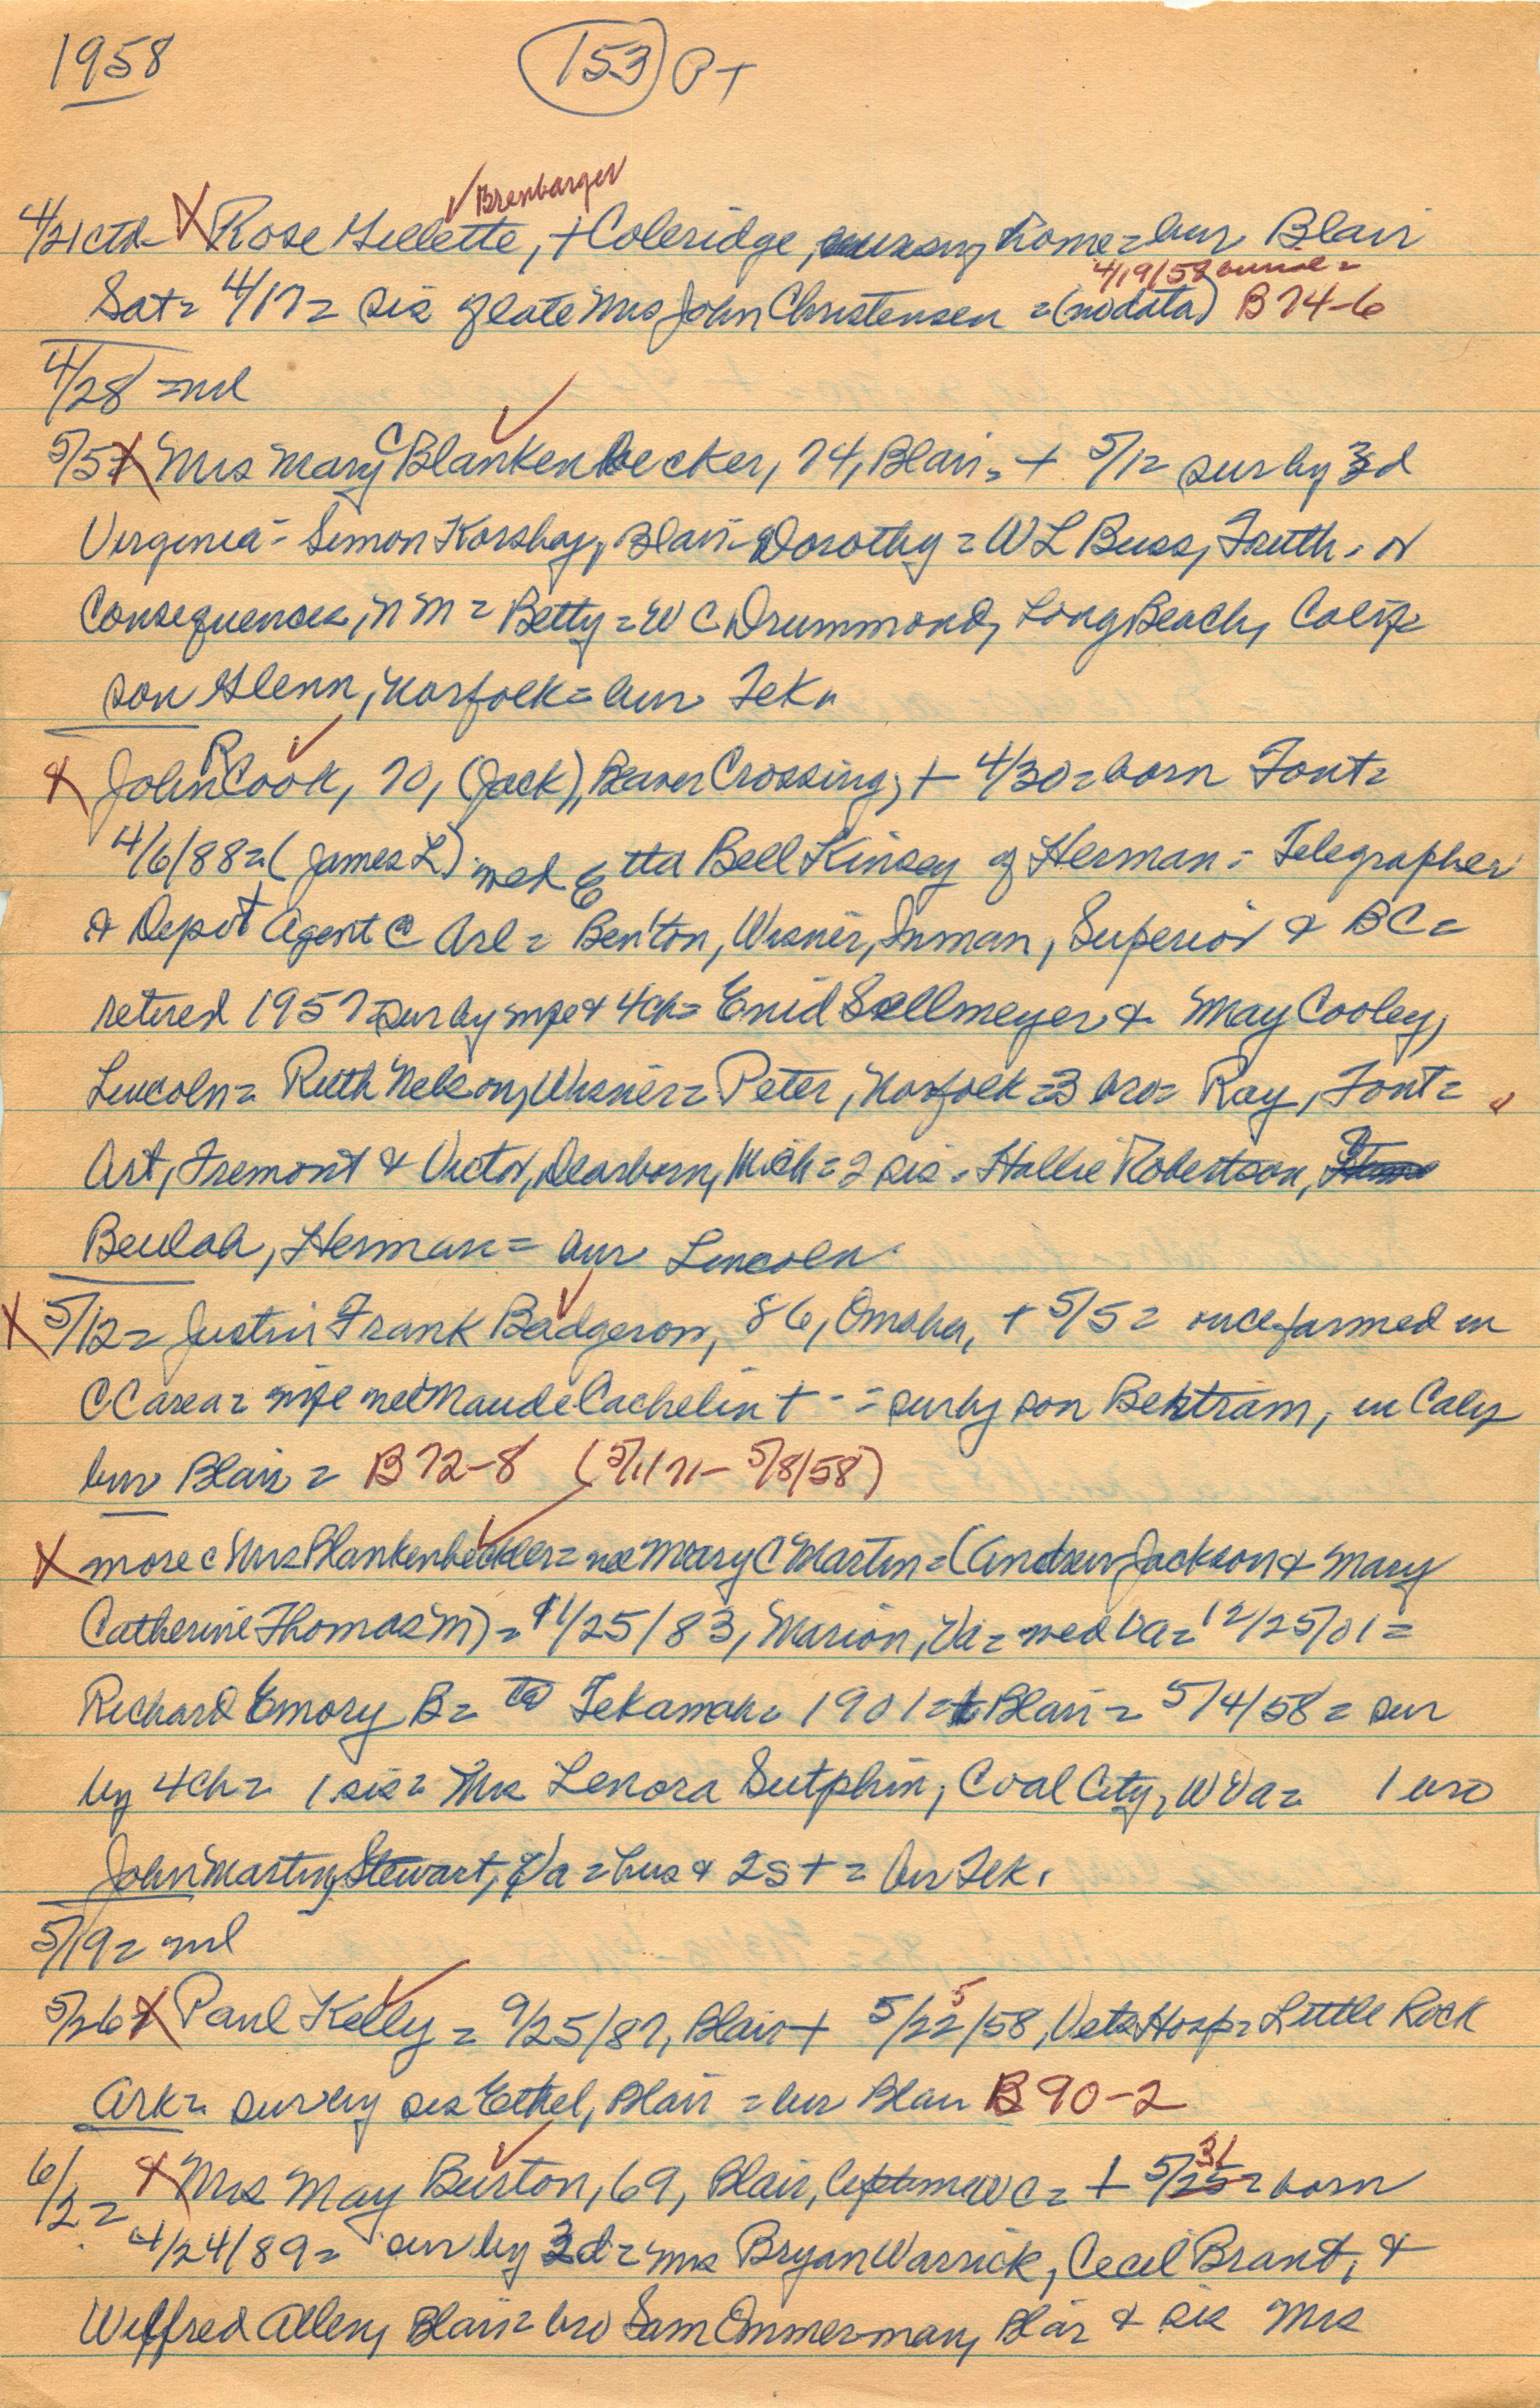 1958 153 PT
✓ Brenbarger
4/21 ctd- X Rose Gillette, + Coleridge, nursing home = bur Blair
4/19/58 burial =
Sat = 4/17 = sis of late Mrs John Christensen = (no data) B 74-6
4/28 = nil
5/5 X Mrs Mary C Blankenbecker, 74, Blair = + 5/1 = sur by 3d
Virginia = Simon Korshoj, Blair = Dorothy = W L Buss, Truth or
Consequences, N M = Betty = W C Drummond, Long Beach, Calif =
son Glenn, Norfolk = bur Tek.
X John R Cook, 70, (Jack), Beaver Crossing, + 4/30 = born Font =
4/6/88 = (James L) med Etta Bell Kinsey of Herman = Telegrapher
& Depot Agent @ Arl = Benton, Wisner, Inman, Superior & BC =
retired 1957 = sur by wife & 4ch = Enid Sellmeyer & May Cooley,
Lincoln = Ruth Nelson, Wisner = Peter, Norfolk = 3 bro = Ray, Font =
Art, Fremont & Victor, Dearborn, Mich = 2 sis = Hallie Robertson,
Beulah, Herman = bur Lincoln
X 5/12 = Justin Frank Badgerow, 86, Omaha, + 5/5 = once farmed in
CC area = wife neé Maude Cachelin + - = sur by son Bertram, in Calif
bur Blair = B 72-8 (5/1/71 - 5/8/58)
X more c Mrs Blankenbeckler = neé Mary C Martin = (Andrew Jackson & Mary
Catherine Thomas M) = 11/25/83, Marion, Va = med Va = 12/25/01 =
Richard Emory B = to Tekamah = 1901 = + Blair = 5/4/58 = sur
by 4ch = 1 sis = Mrs Lenora Sutphin, Coal City, W Va = 1 bro
John Martin, Stewart, Va = hus & 2s + = bur Tek.
5/19 = nil
5/26 X Paul Kelly = 9/25/87, Blair + 5/22/58, Vets Hosp = Little Rock
Ark = sur by sis Ethel, Blair = bur Blair B 90-2
6/2 = X Mrs May Burton, 69, Blair, = + 5/25 31 = born
4/24/89 = sur by 3d = Mrs Bryan Warrick, Cecil Brant, &
Wilfred Allen, Blair = bro Sam Ommerman, Blair & sis Mrs